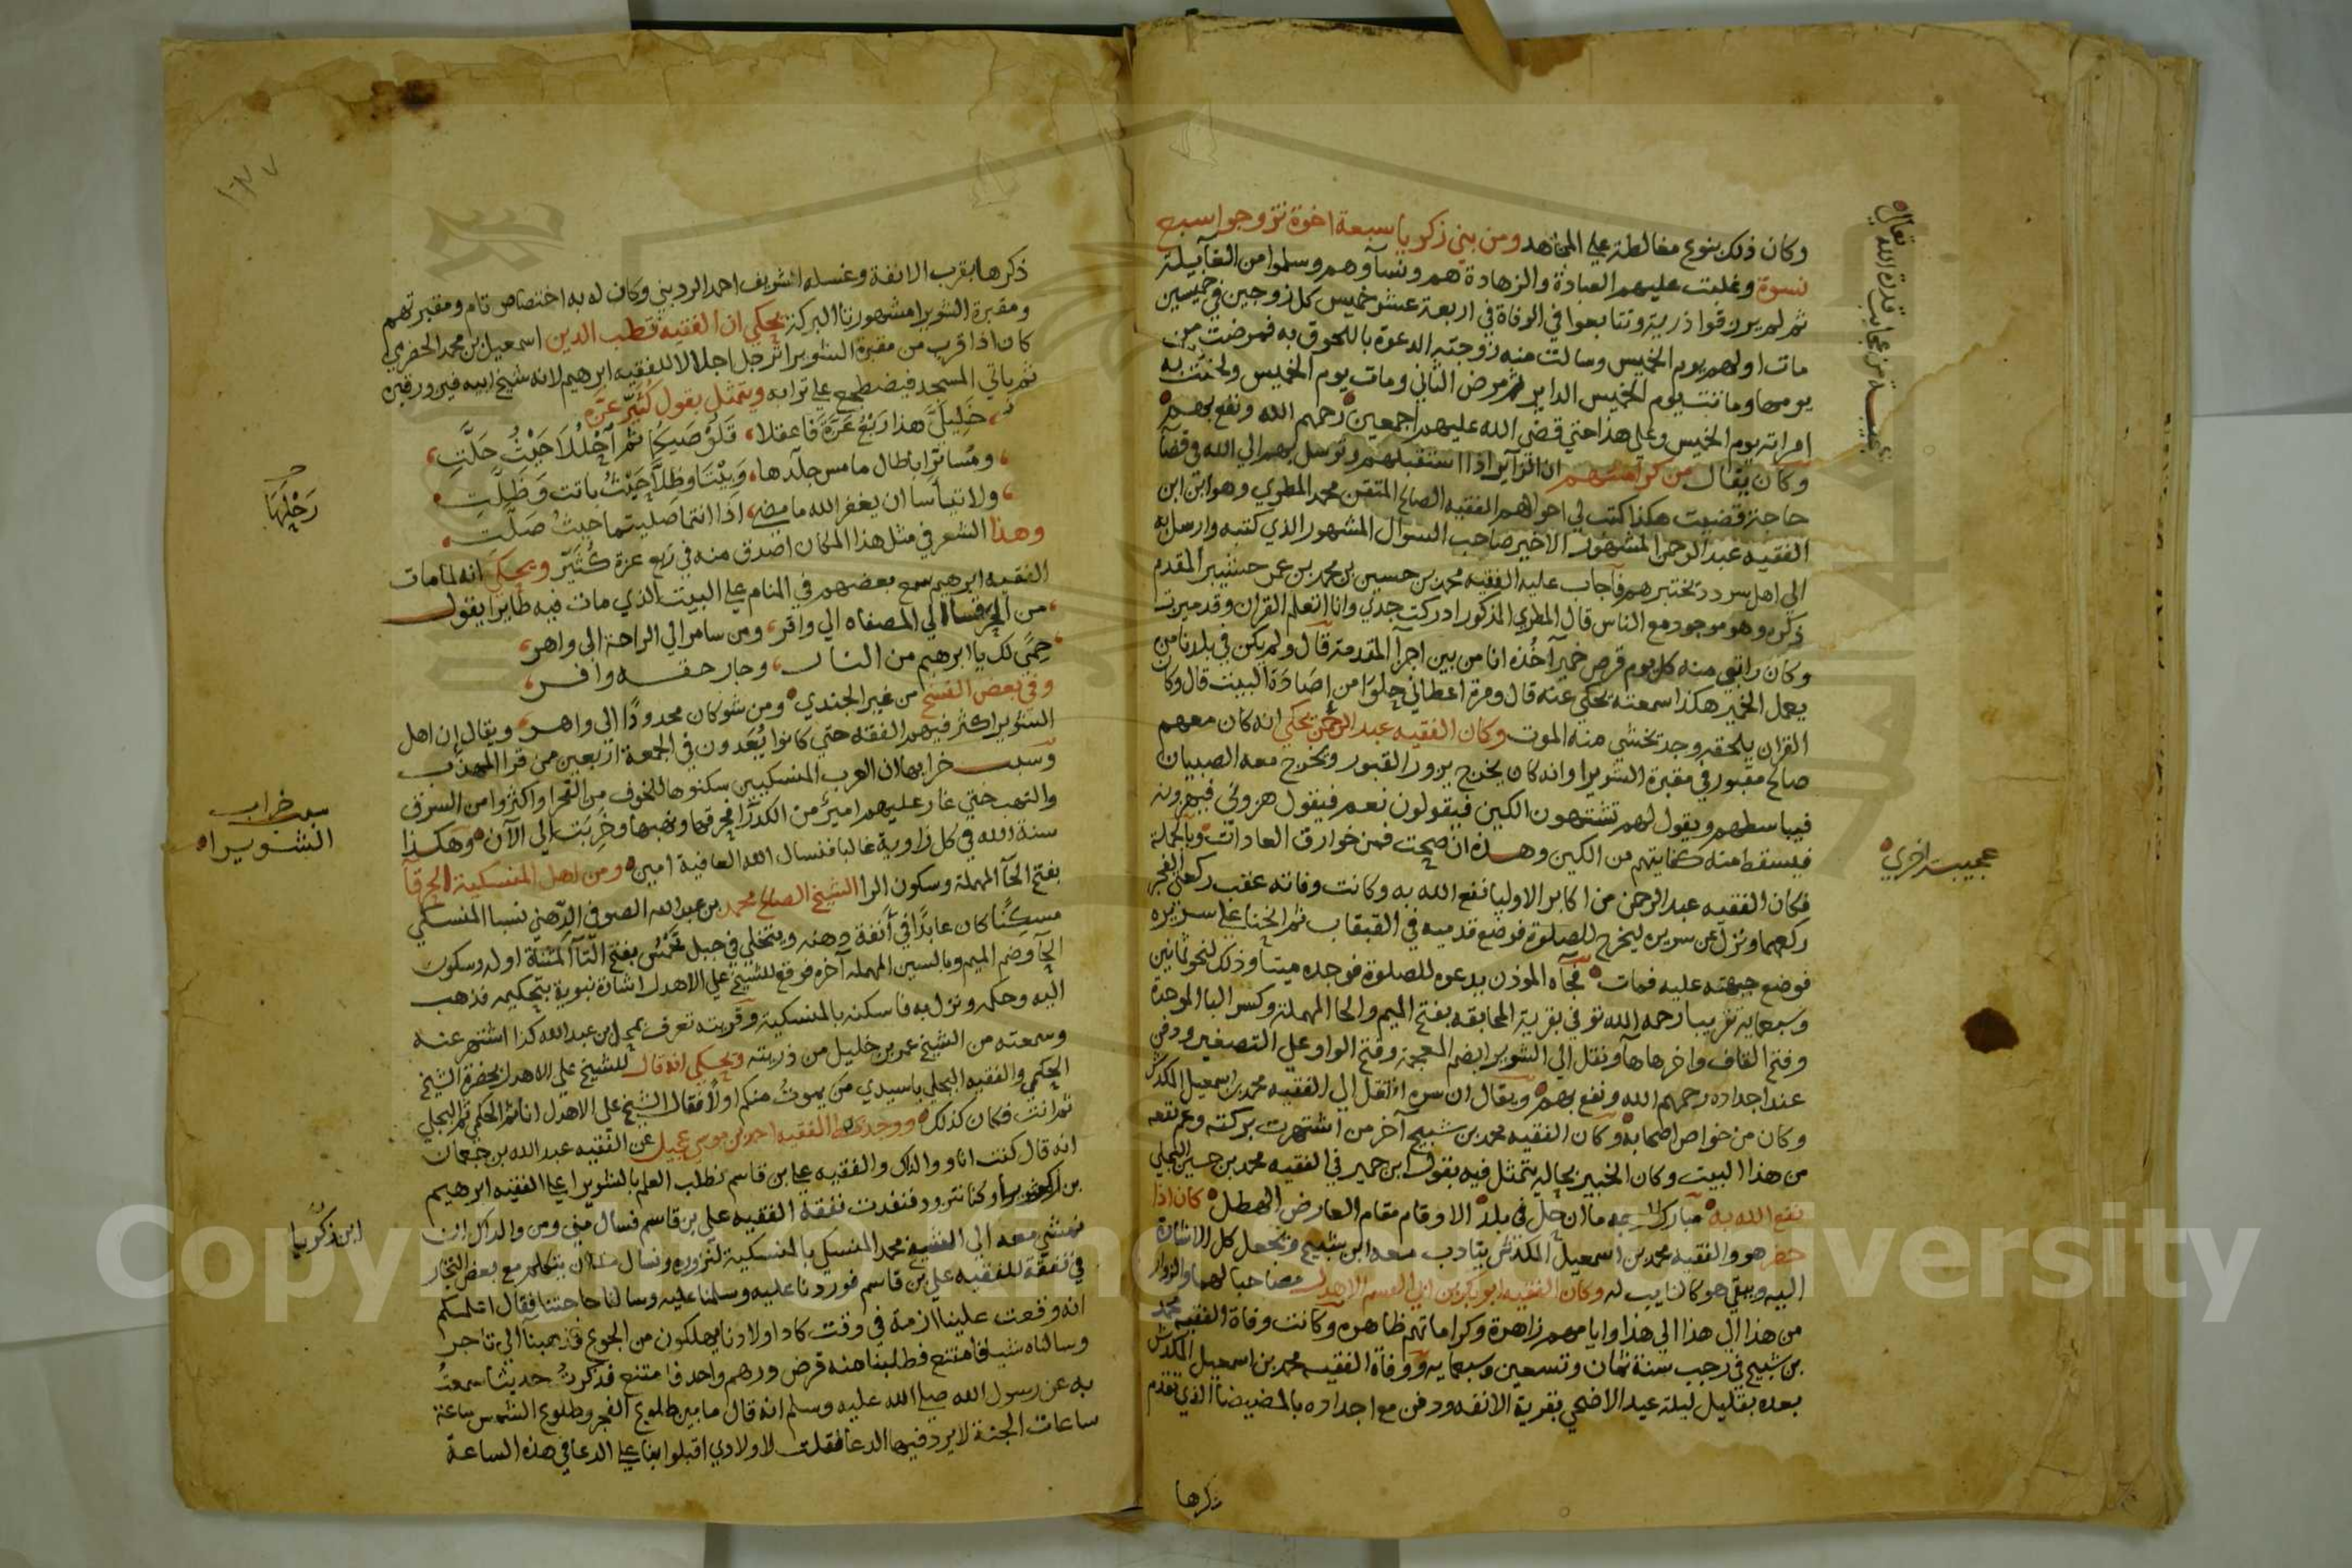 وكان ذلك بنوع مغالطة على المجاهد ومن بني زكريا سبعة اخوة تزوجوا سبع
نسوة وغلبت عليهم العبادة والزهادة هم ونساوهم وسلموا من الغايلة
ثم لم يرزقوا ذرية وتتابعوا في الوفاة في اربعة عشر خميس كل زوجين في خميسين
مات اولهم يوم الخميس وسالت منه زوجته الدعوة باللحوق به فمرضت من
يومها وماتت يوم الخميس الداير ثم مرض الثاني ومات يوم الخميس ولحقت به
امراته يوم الخميس وعلى هذا حتى قضى الله عليهم اجمعين رحمهم الله ونفع بهم
وكان يقال من كرامتهم ان الزاير اذا استقبلهم وتوسل بهم الى الله في قضا
حاجة قضيت هكذا كتب لي احوالهم الفقيه الصالح المتقن محمد المطري وهو ابن ابن
الفقيه عبد الرحمن المشهور الاخير صاحب السوال المشهور الذي كتبه وارسل به
الى اهل سردد يختبرهم فاجاب عليه الفقيه محمد بن حسين بن محمد بن عمر حشيبر المقدم
ذكره وهو موجود مع الناس قال المطري المذكور ادركت جدي وانا اتعلم القران وقد ميزت
وكان راتبي منه كل يوم قرص خمير آخذه انا من بين اجرآ المقدمة قال ولم يكن في بلدنا من
يعمل الخمير هكذا سمعته يحكي عنه قال ومرة اعطاني حلوا من اصادة البيت قال وكان
القران يلحقه وجد يخشى منه الموت وكان الفقيه عبد الرحمن يحكي انه كان معهم
صالح مقبور في مقبرة الشويرا وانه كان يخرج يزور القبور ويخرج معه الصبيان
فيباسطهم ويقول لهم تشتهون الكين فيقولون نعم فيقول هزوني فيهزونه
فيسقط منه كفايتهم من الكين وهذه ان صحت فمن خوارق العادات وبالجملة
فكان الفقيه عبد الرحمن من اكابر الاوليا نفع الله به وكانت وفاته عقب ركعتي الفجر
ركعهما ونزل عن سريره ليخرج للصلوة فوضع قدميه في القبقاب ثم انحنا على سريره
فوضع جبهته عليه فمات فجآه الموذن يدعوه للصلوة فوجده ميتا وذلك لنحو ثمانين
وسبعماية تقريبا رحمه الله توفي بقرية المحابقه بفتح الميم والحا المهملة وكسر البا الموحدة
وفتح القاف واخرها هآ ونقل الى الشويرا بضم المعجمة وفتح الواو على التصغير ودفن
عند اجداده رحمهم الله ونفع بهم ويقال ان سره انتقل الى الفقيه محمد بن اسمعيل المكدش
وكان من خواص اصحابه وكان الفقيه محمد بن شبيح آخر من اشتهرت بركته وعم نفعه
من هذا البيت وكان الخبير بحاليه يتمثل فيه بقول ابن حمير في الفقيه محمد بن حسين البجلي
نفع الله به مبارك الوجه ما ان حل في بلد الا وقام مقام العارض الهطل كان اذا
حضر هو والفقيه محمد بن اسمعيل المكدش يتادب معه ابن شبيح ويجعل كل الاشارة
اليه ويبقى هو كالنايب له وكان الفقيه ابو بكر بن ابي القسم الاهدل مصاحبا لهما والزوار
من هذا الى هذا الى هذا وايامهم زاهرة وكراماتهم ظاهرة وكانت وفاة الفقيه محمد
بن شبيح في رجب سنة ثمان وتسعين وسبعمايه ووفاة الفقيه محمد بن اسمعيل المكدش
بعده بقليل ليلة عيد الاضحى بقرية الانفه ودفن مع اجداده بالمضيضا الذي تقدم
ذكرها
عجيبة من عجايب قدرة الله تعالى
عجيبة اخرى
ذكرها بقرب الانفة وغسله الشريف احمد الرديني وكان له به اختصاص تام ومقبرتهم
ومقبرة الشويرا مشهورتا البركة يحكي ان الفقيه قطب الدين اسمعيل بن محمد الحضرمي
كان اذا قرب من مقبرة الشويرا ترجل اجلالا للفقيه ابرهيم لانه شيخ ابيه فيزور قبره
ثم ياتي المسجد فيضطجع على ترابه ويتمثل بقول كثير عزه
خليلي هذا ربع عزة فاعقلا قلوصيكما ثم احللا حيث حلت
ومسا ترابا طال ما مس جلدها وبيتا وظلا حيث باتت وظلت
ولا تياسا ان يغفر الله ما مضى اذا انتما صليتما حيث صلت
وهذا الشعر في مثل هذا المكان اصدق منه في ربع عزة كثير ويحكي انه لما مات
الفقيه ابرهيم سمع بعضهم في المنام على البيت الذي مات فيه طايرا يقول
من الى المصفاه الى واقر ومن سامر الى الراحة الى واهر
حمى لك يا ابرهيم من النار وجار حقه وافر
وفي بعض النسخ من غير الجندي ومن شوكان محدودا الى واهر ويقال ان اهل
الشويرا كثر فيهم الفقه حتى كانوا يعدون في الجمعة اربعين ممن قرا المهذب
وسبب خرابها ان العرب المنسكيين سكنوها للخوف من الفجرا واكثروا من السرق
والنهب حتى غار عليهم امير من الكدرا فحرقها ونهبها وخربت الى الآن وهكذا
سنة الله في كل زاوية غالبا فنسال الله العافية امين ومن اهل المنسكية الحرقا
بفتح الحآ المهملة وسكون الرا الشيخ الصالح محمد بن عبد الله الصوفي الدهني نسبا المنسكي
مسكنا كان عابدا في انفة دهنه ويتخلى في جبل تحمس بفتح التآ المثناة اوله وسكون
الحآ وضم الميم وبالسين المهمله آخره فوقع للشيخ علي الاهدل اشارة نبوية بتحكيمه فذهب
اليه وحكمه ونزل به فاسكنه بالمنسكية وقريته تعرف بمحل بن عبد الله كذا اشتهر عنه
وسمعته من الشيخ عمر بن خليل من ذريته ويحكي انه قال للشيخ علي الاهدل بحضرة الشيخ
الحكمي والفقيه البجلي ياسيدي من يموت منكم اولا فقال الشيخ علي الاهدل انا ثم الحكمي ثم البجلي
ثم انت فكان كذلك ووجدت بخط الفقيه احمد بن موسى عجيل عن الفقيه عبد الله بن جعمان
انه قال كنت انا ووالدك والفقيه علي بن قاسم نطلب العلم بالشويرا على الفقيه ابرهيم
بن زكريا وكنا نتزود فنفدت نفقة الفقيه علي بن قاسم فسال مني ومن والدك ان
نمشي معه الى الشيخ محمد المنسكي بالمنسكية لنزوره ونسال منه ان يتكلم مع بعض التجار
في نفقة للفقيه علي بن قاسم فوردنا عليه وسلمنا عليه وسالنا حاجتنا فقال اعلمكم
انه وقعت علينا ازمة في وقت كاد اولادنا يهلكون من الجوع فذهبنا الى تاجر
وسالناه شيا فامتنع فطلبنا منه قرض درهم واحد فامتنع فذكرت حديثا سمعت
به عن رسول الله صلى الله عليه وسلم انه قال ما بين طلوع الفجر وطلوع الشمس ساعة
ساعات الجنة لا يرد فيها الدعا فقلت لاولادي اقبلوا بنا على الدعا في هذه الساعة
رحلها
سبب خراب
الشويرا
ابن زكريا
Copyright © King Saud University